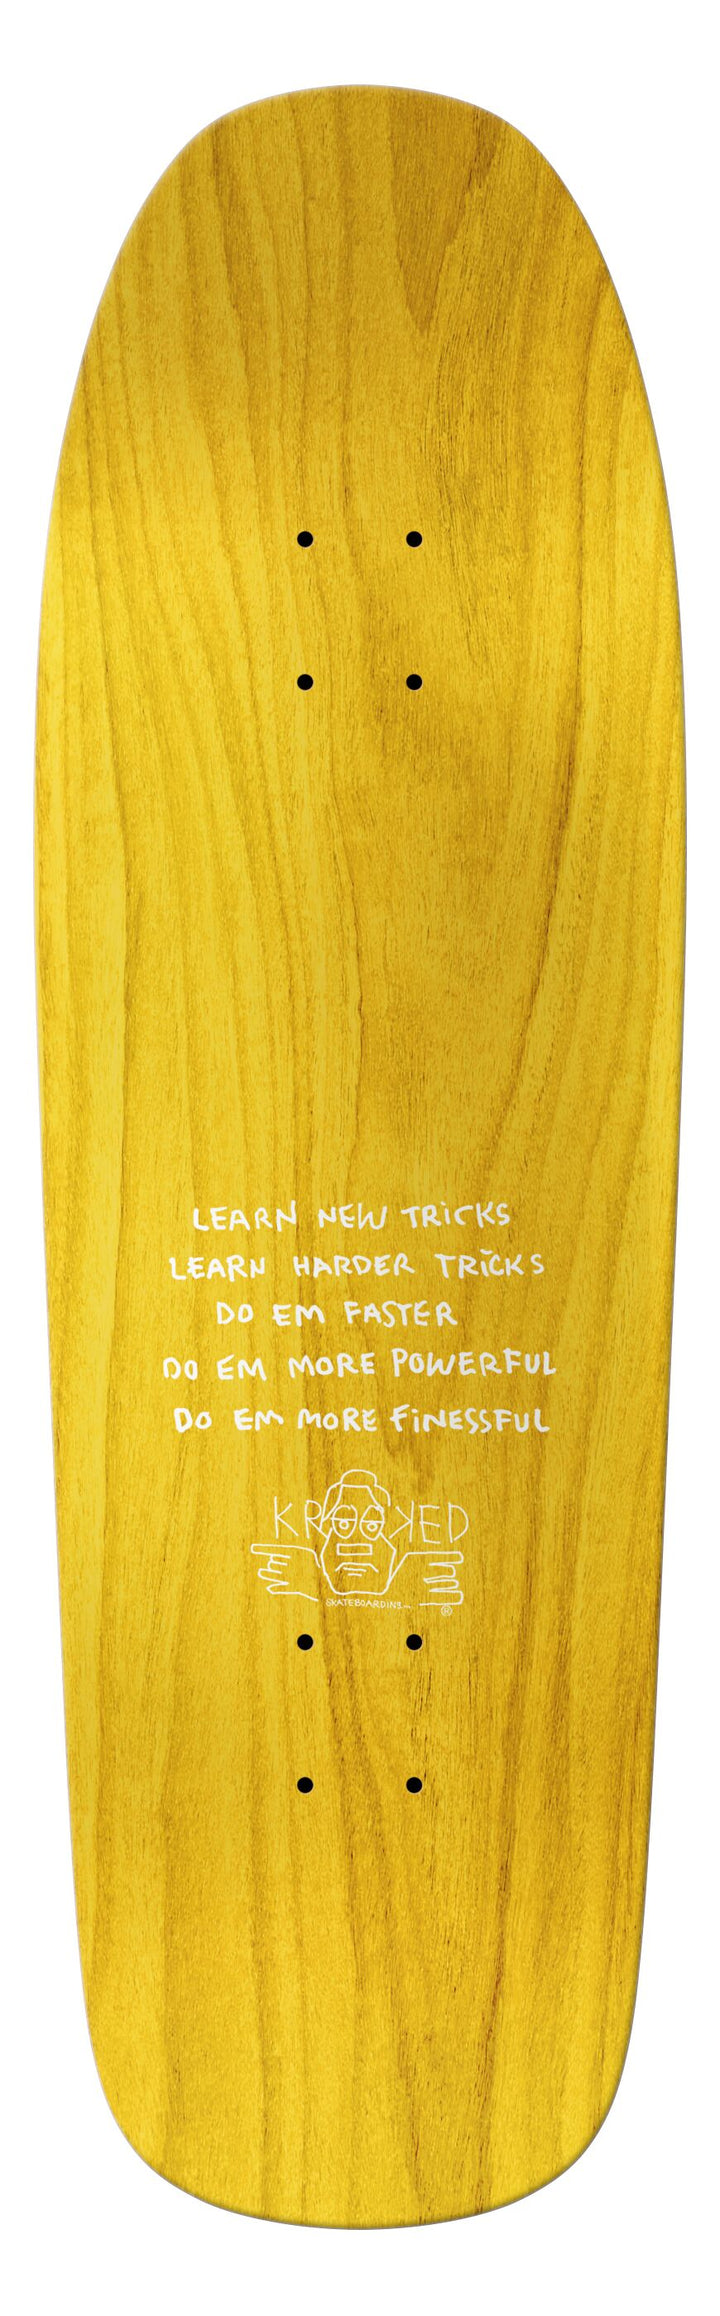 LEARN NEW TRiCKS
LEARN HARDER TRiCKS
DO EM FASTER
DO EM MORE POWERFUL
DO EM MORE FiNESSFUL
KROOKED
SKATEBOARDING...
®